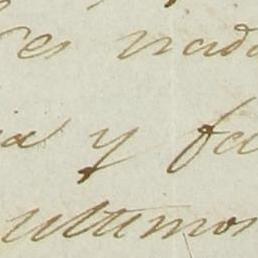 es nada
ia y fa
ultimos